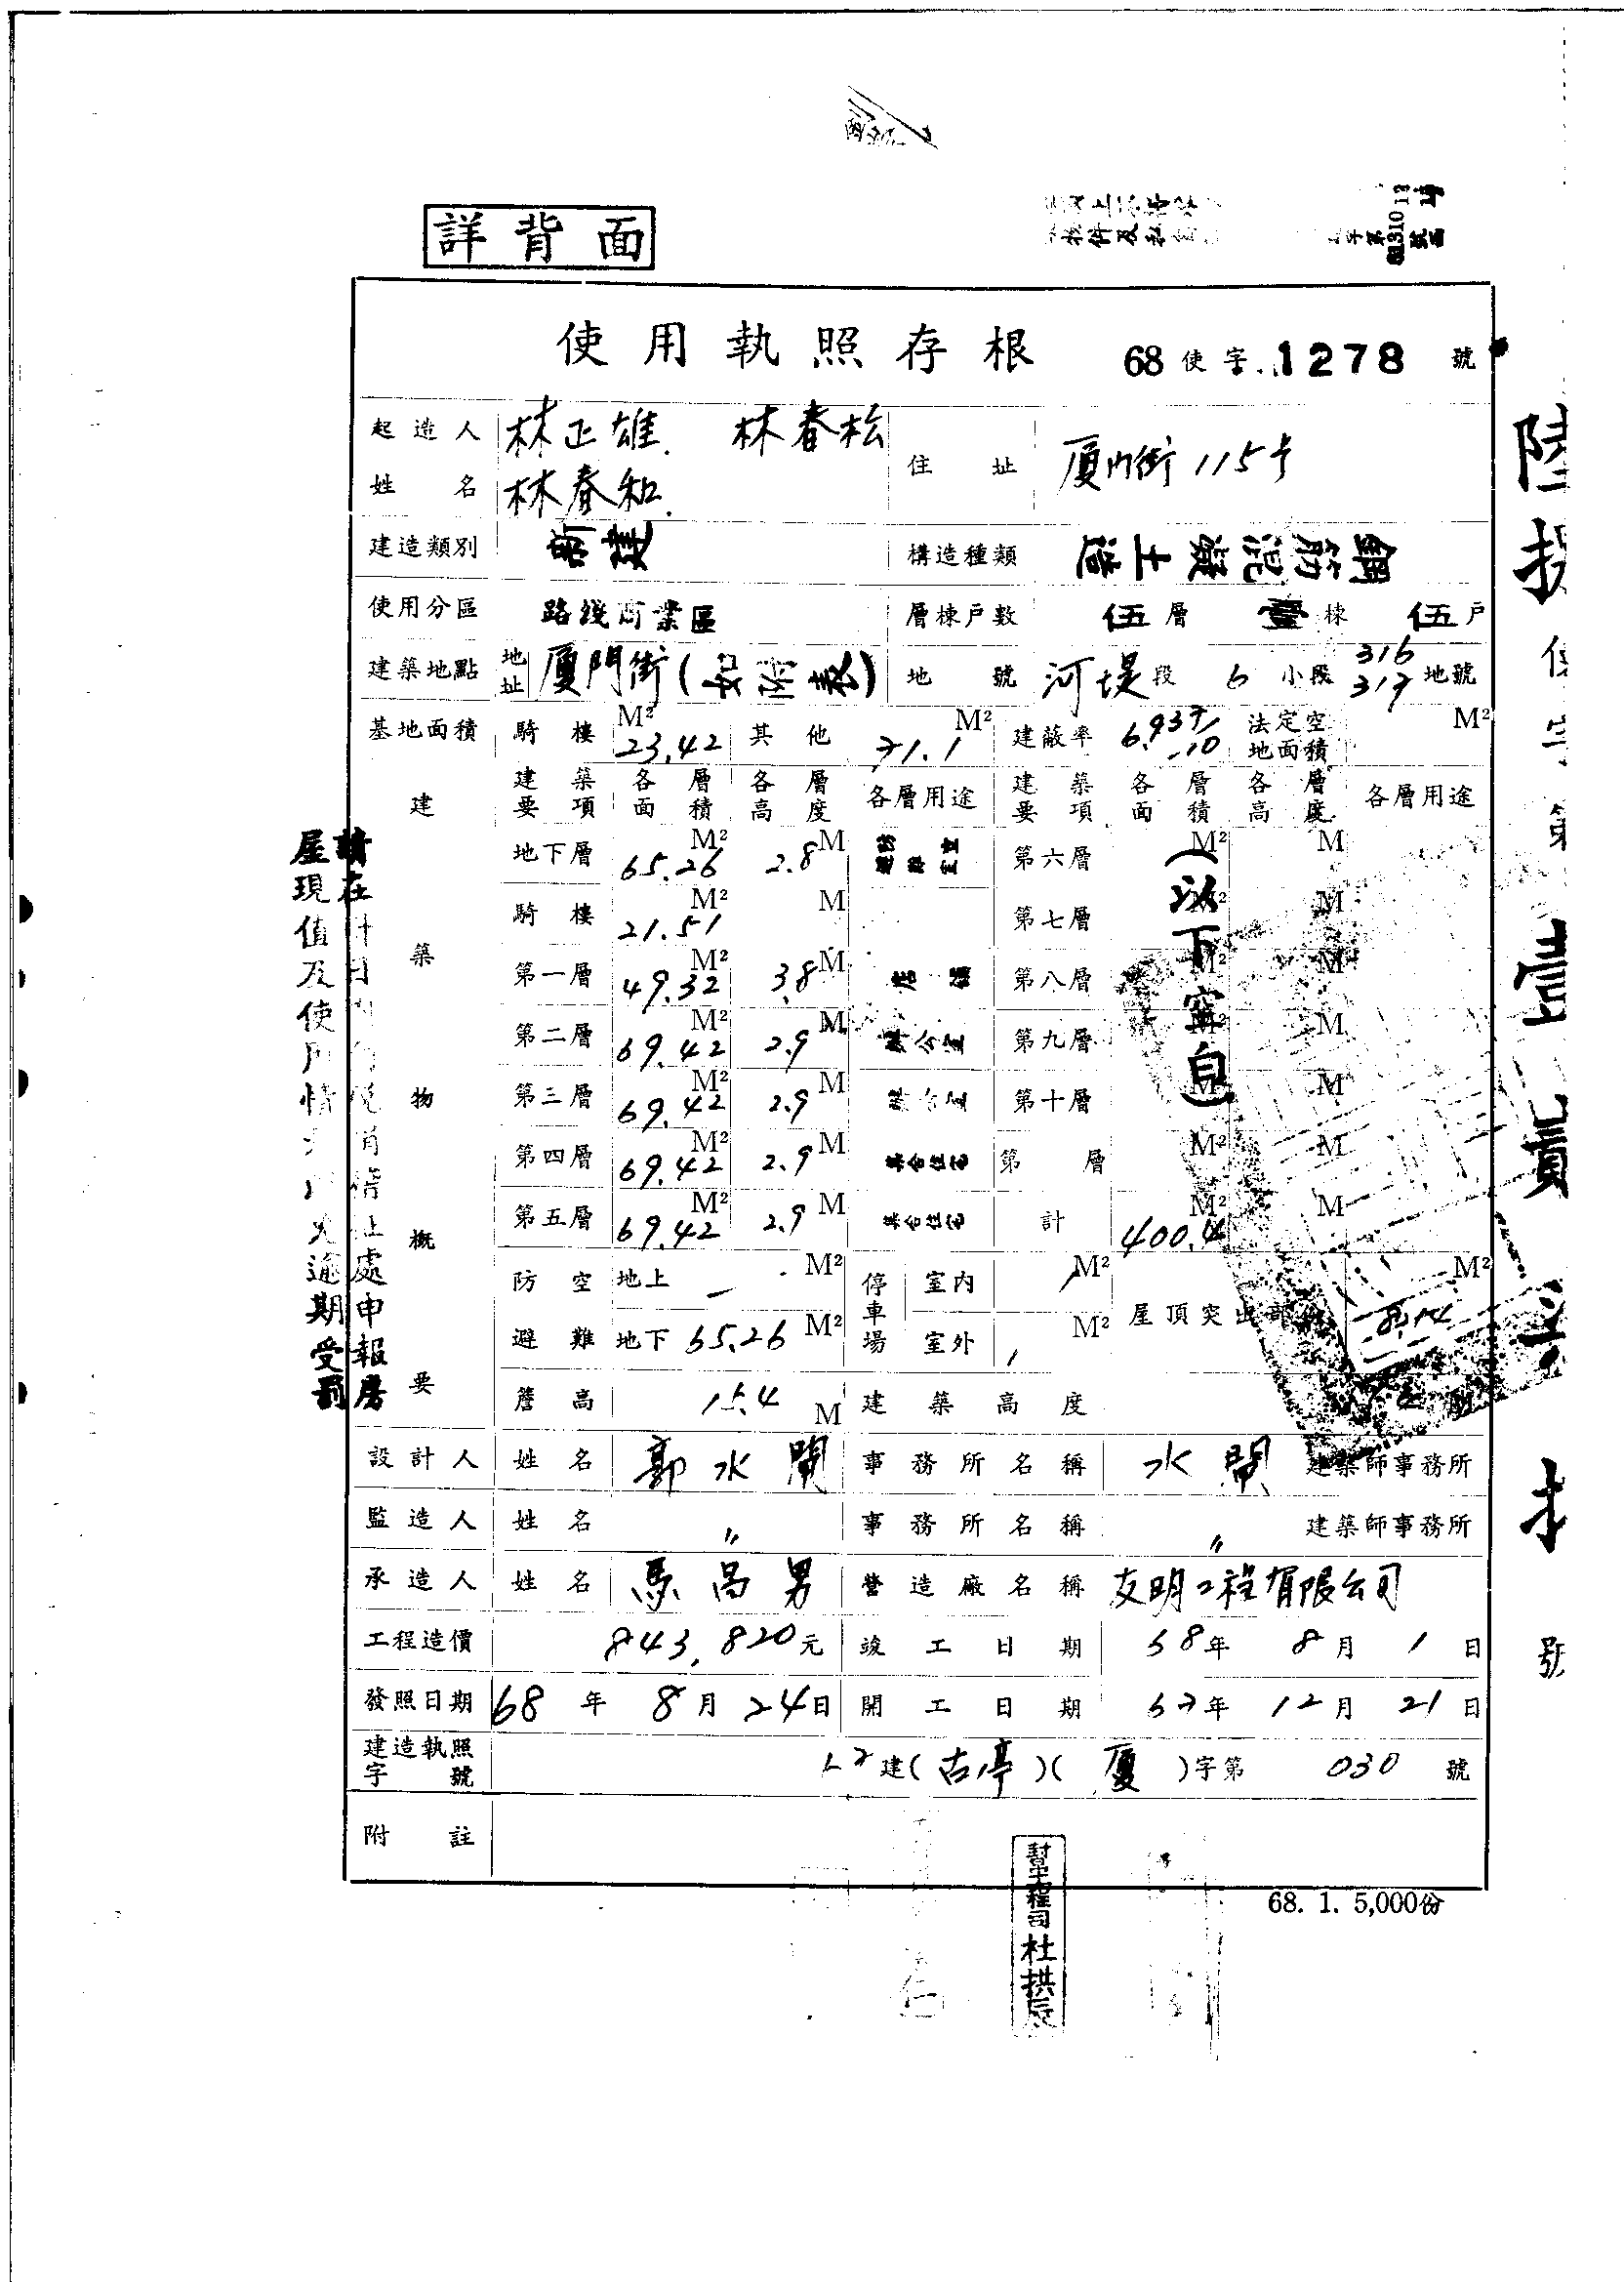 詳背面
使用執照存根 68使字 1278 號
起造人姓名 林正雄 林春松 林春和 住址 厦門街115号
建造類別 新建 構造種類 鋼筋混凝土造
使用分區 路綫商業區 層棟戶數 伍層 壹棟 伍戶
建築地點 地址 厦門街( ) 地號 河堤段 6 小段 316 317 地號
基地面積 騎樓 M² 23.42 其他 71.1 M² 建蔽率 法定空地面積 M²
建築要項 各層面積 各層高度 各層用途 建築要項 各層面積 各層高度 各層用途
建築物概要
地下層 65.26 M² 2.8 M 第六層 M² M
騎樓 21.51 M² M 第七層 M² M
第一層 49.32 M² 3.8 M 店舖 第八層 M² M
第二層 69.42 M² 2.9 M 第九層 M² M
第三層 69.42 M² 2.9 M 第十層 M² M
第四層 69.42 M² 2.9 M 集合住宅 第 層 M² M
第五層 69.42 M² 2.9 M 集合住宅 計 400.4 M² M
(以下空白)
防空避難 地上 — M² 停車場 室內 / M² 屋頂突出部 M²
地下 65.26 M² 室外 / M²
簷高 15.4 M 建築高度
設計人 姓名 郭水 事務所名稱 水 建築師事務所
監造人 姓名 〃 事務所名稱 〃 建築師事務所
承造人 姓名 馬昌男 營造廠名稱 友明工程有限公司
工程造價 843,820元 竣工日期 68年 8月 1日
發照日期 68年 8月 24日 開工日期 67年 12月 21日
建造執照字號 67建(古亭)(厦)字第 030 號
附註
68. 1. 5,000份
工程司 杜拱辰
請在 處申報房
屋現值及使用情 逾期受罰